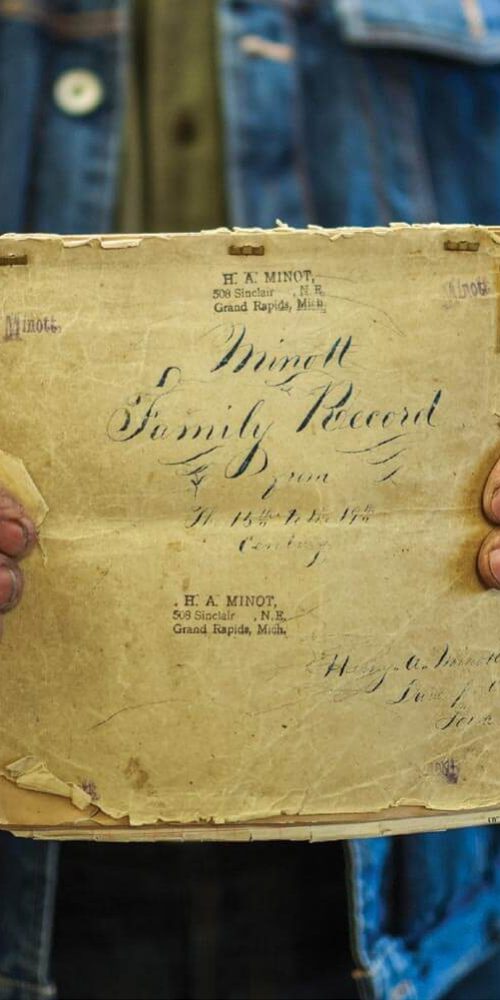 H. A. MINOT,
508 Sinclair , N. E.
Grand Rapids, Mich.
Minott.
Minott
Minott
Family Record
From
The 15th to the 19th
Century.
. H. A. MINOT,
508 Sinclair , N.E.
Grand Rapids, Mich.
Harry. A. Minott